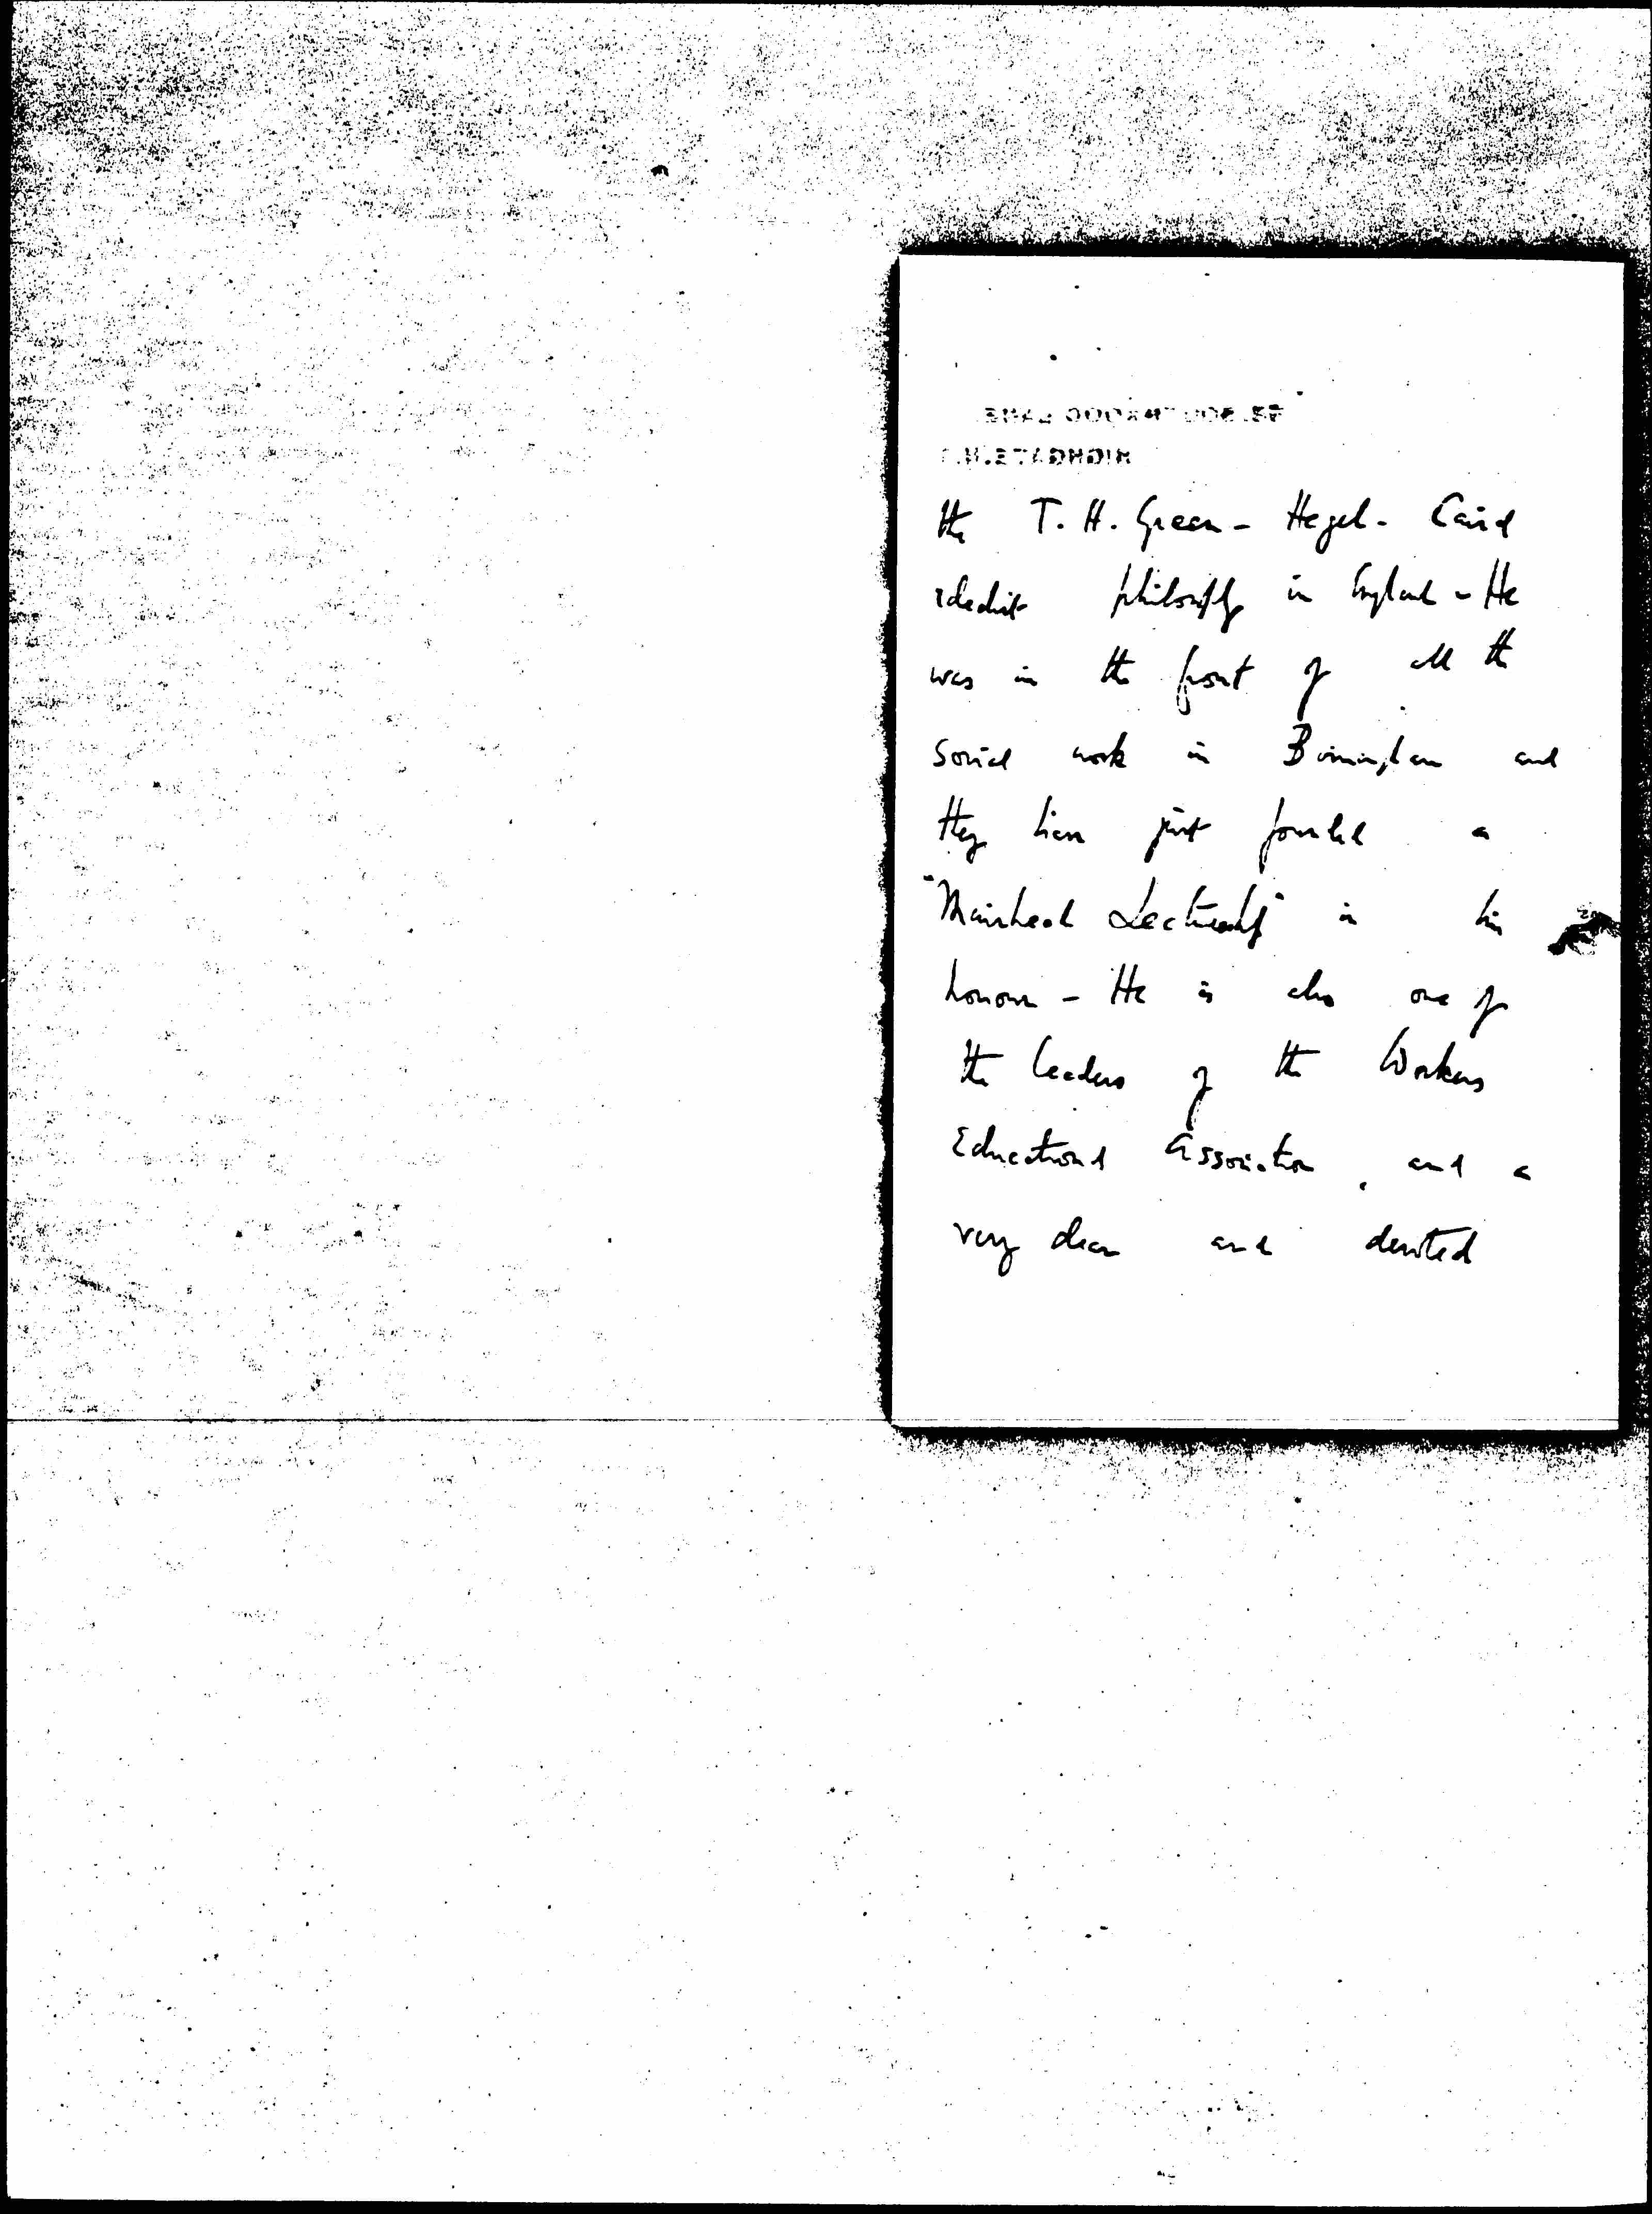 the T. H. Green - Hegel - Caird
idealist philosophy in England - He
was in the front of all the
social work in Birmingham and
they have just founded a
"Muirhead Lectureship" in his
honour - He is also one of
the leaders of the Workers
Educational Association, and a
very dear and devoted